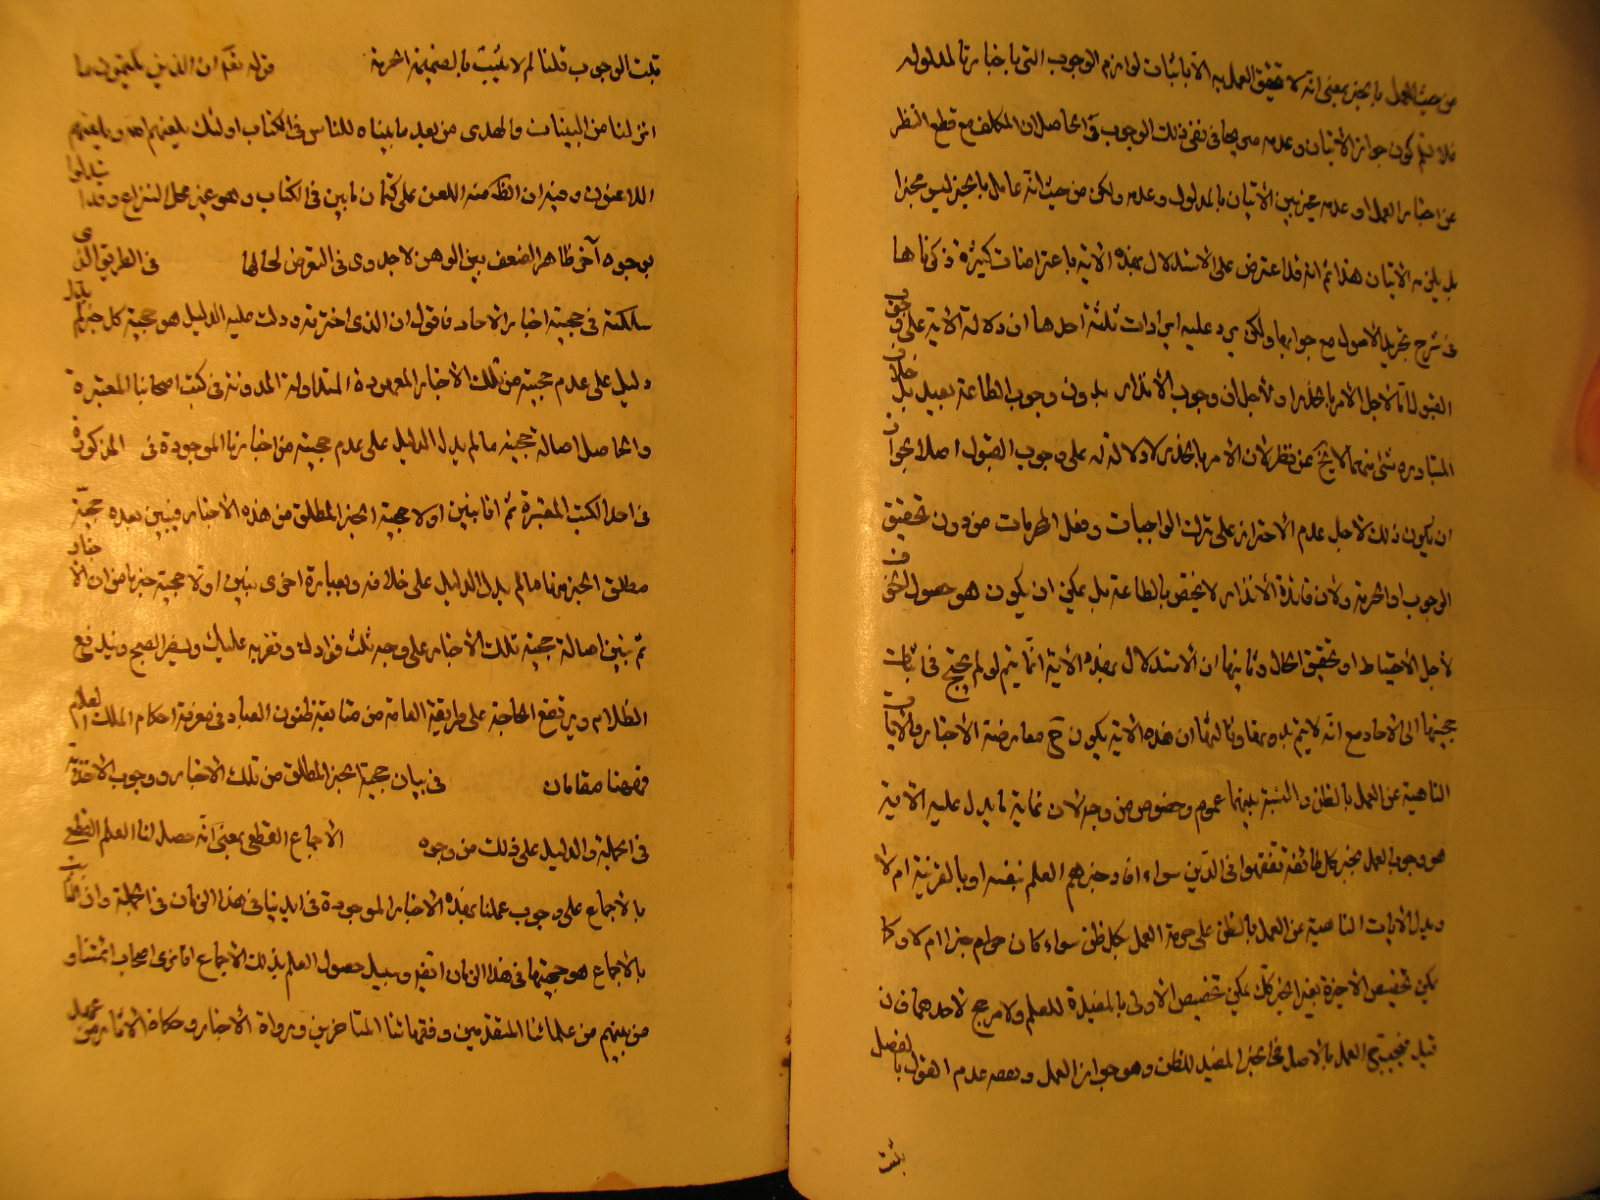 من حيث العمل بالخبر بمعنى انه لا تحقيق العمل به الا باثبات لوازم الوجوب التى باخبارنا لمدلوله
فلا يتم كون جواز الاتيان وعدمه فى نفى ذلك الوجوب والحاصل ان المكلف مع قطع النظر
عن اخبار العمل او عدمه مخير بين الاتيان بالمدلول وعدمه ولكن من حيث انه عامل بالخبر ليس مخيرا
بل يلزمه الاتيان هذا ثم انه قد اعترض على الاستدلال بهذه الاية باعتراضات كثيرة ذكرناها
فى شرح تجريد الاصول مع جوابها ولكن يرد عليه ايرادات ثلثة احدها ان دلالة الاية على وجوب
القبول اما لاجل الامر بالحذر او لاجل ان وجوب الانذار بدون وجوب الطاعة بعيد بل خلاف
المتبادر وشئ منهما لا يخ عن نظر لان الامر بالحذر لا دلالة له على وجوب القبول اصلا لجواز
ان يكون ذلك لاجل عدم الاحتراز على ترك الواجبات وفعل المحرمات من دون تحقيق
الوجوب او الحرمة ولان فائدة الانذار لا تختص بالطاعة بل يمكن ان يكون هو حصول الخوف
لاجل الاحتياط او تحقيق الحال وثانيها ان الاستدلال بهذه الاية انما يتم لو لم يحتج فى اثبات
حجيتها الى الاحاد مع انه لا يتم بدونها وثالثها ان هذه الاية يكون ح معارضة الاخبار والايات
الناهية عن العمل بالظن والنسبة بينهما عموم وخصوص من وجه لان غاية ما يدل عليه الاية
هو وجوب العمل بخبر كل طائفة تفقهوا فى الدين سواء افاد خبرهم العلم بنفسه او بالقرينة ام لا
ويدل الايات الناهية عن العمل بالظن على حرمة العمل بكل ظن سواء كان خبرا ام لا وكا
يمكن تخصيص الاخيرة بغير الخبر كك يمكن تخصيص الاولى بالمفيدة للعلم ولا مرجح لاحدهما فان
قيل فيجب ح العمل بالاصل فى الخبر المفيد للظن وهو جواز العمل وبضمه عدم القول بالفصل
يثبت
يثبت الوجوب قلنا لم لا يثبت بالضميمة الحرمة قوله تعم ان الذين يكتمون ما
انزلنا من البينات والهدى من بعد ما بيناه للناس فى الكتاب اولئك يلعنهم الله ويلعنهم
اللاعنون وفيه ان الظ منه اللعن على كتمان ما بين فى الكتاب وهو غير محل النزاع وقد استدلوا
بوجوه آخر ظاهر الضعف بين الوهن لا جدوى فى التعرض لحالها فى الطريق الذى
سلكته فى حجية اخبار الاحاد فاقول ان الذى اخترته ودلت عليه الدليل هو حجية كل خبر لم يدل
دليل على عدم حجيته من تلك الاخبار المعهودة المتداولة المدونة فى كتب اصحابنا المعتبرة
والحاصل اصالة حجية ما لم يدل الدليل على عدم حجيته من اخبارنا الموجودة فى المذكورة
فى احد الكتب المعتبرة ثم انا نبين اولا حجية الخبر المطلق من هذه الاخبار فنبين بعده حجية
مطلق الخبر منها ما لم يدل الدليل على خلافه وبعبارة اخرى نبين اولا حجية خبر ما من الاخبار
ثم نبين اصالة حجية تلك الاخبار على وجه تلث فؤادك وتقر به عليك ويسفر الصبح ويندفع
الظلام ويرتفع الحاجة على طريقة العامة من متابعة ظنون العباد فى معرفة احكام الملك العلام
فههنا مقامان فى بيان حجية الخبر المطلق من تلك الاخبار ووجوب الاخذ به
فى الجملة والدليل على ذلك من وجوه الاجماع القطعى بمعنى انه حصل لنا العلم القطعى
بالاجماع على وجوب عملنا بهذه الاخبار الموجودة فى ايدينا فى هذا الزمان فى الجملة وان الثابت
بالاجماع هو حجيتها فى هذا الزمان ايضا وسبيل حصول العلم بذلك الاجماع انا نرى اصحاب ائمتنا و
من بينهم من علمائنا المتقدمين وفقهائنا المتاخرين ورواة الاخبار وحكاة الاثار من عهد